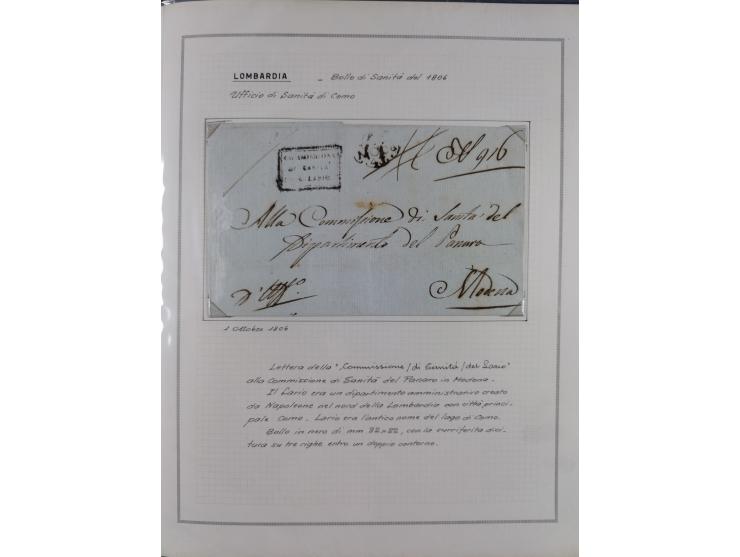 LOMBARDIA - Bollo di Sanità del 1806
Ufficio di Sanità di Como
COMMISSIONE
DI SANITA
LARIO
N 916
Alla Commissione di Sanità del
Dipartimento del Panaro
D'Uff.o
Modena
1 Ottobre 1806
Lettera della "Commissione/di Sanità/del Lario"
alla Commissione di Sanità del Panaro in Modena.
Il Lario era un dipartimento amministrativo creato
da Napoleone nel nord della Lombardia con città princi-
pale Como. Lario era l'antico nome del lago di Como.
Bollo in nero di mm 32x22, con la surriferita dici-
tura su tre righe entro un doppio contorno.